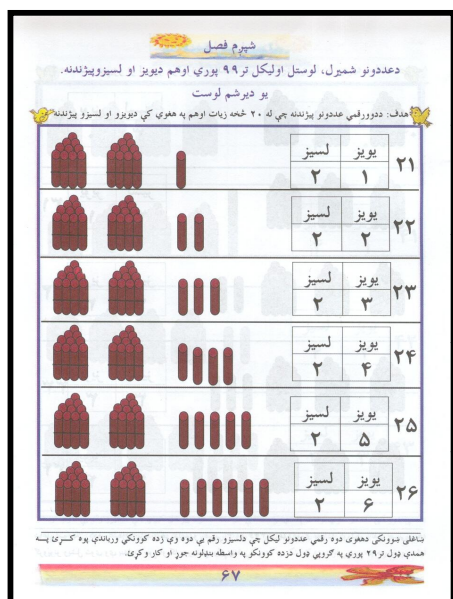 شپږم فصل
دعددونو شمیرل، لوستل اولیکل تر ۹۹ پورې اوهم دیویز او لسیزوپیژندنه.
یو دیرشم لوست
هدف: ددوورقمي عددونو پیژندنه چې له ۲۰ څخه زیات اوهم په هغوی کې دیویزو او لسیزو پیژندنه
لسیز یویز
۲ ۱ ۲۱
لسیز یویز
۲ ۲ ۲۲
لسیز یویز
۲ ۳ ۲۳
لسیز یویز
۲ ۴ ۲۴
لسیز یویز
۲ ۵ ۲۵
لسیز یویز
۲ ۶ ۲۶
ښاغلی ښوونکی دهغوی دوه رقمي عددونو لیکل چې دلسیزو رقم یې دوه وي زده کوونکي ورباندې پوه کــړئ پــه
همدې ډول تر ۲۹ پورې په ګروپي ډول دزده کوونکو په واسطه بنډلونه جوړ او کار وکړئ.
۶۷